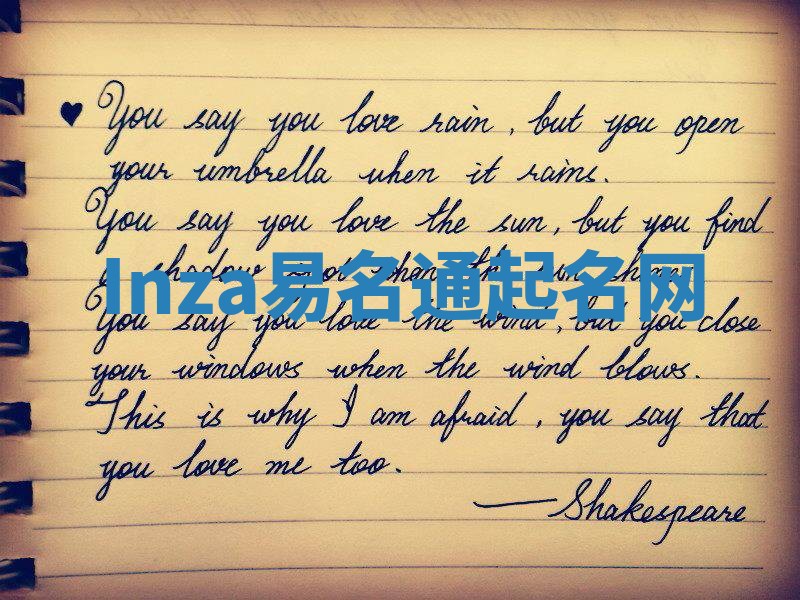 ♥ You say you love rain, but you open
your umbrella when it rains.
You say you love the sun, but you find
a shadow spot when the sun shines.
Inza易名通起名网
You say you love the wind, but you close
your windows when the wind blows.
This is why I am afraid, you say that
you love me too.
—Shakespeare